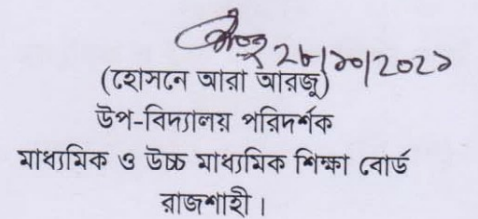 ২৮/১০/২০২১
(হোসনে আরা আরজু)
উপ-বিদ্যালয় পরিদর্শক
মাধ্যমিক ও উচ্চ মাধ্যমিক শিক্ষা বোর্ড
রাজশাহী।